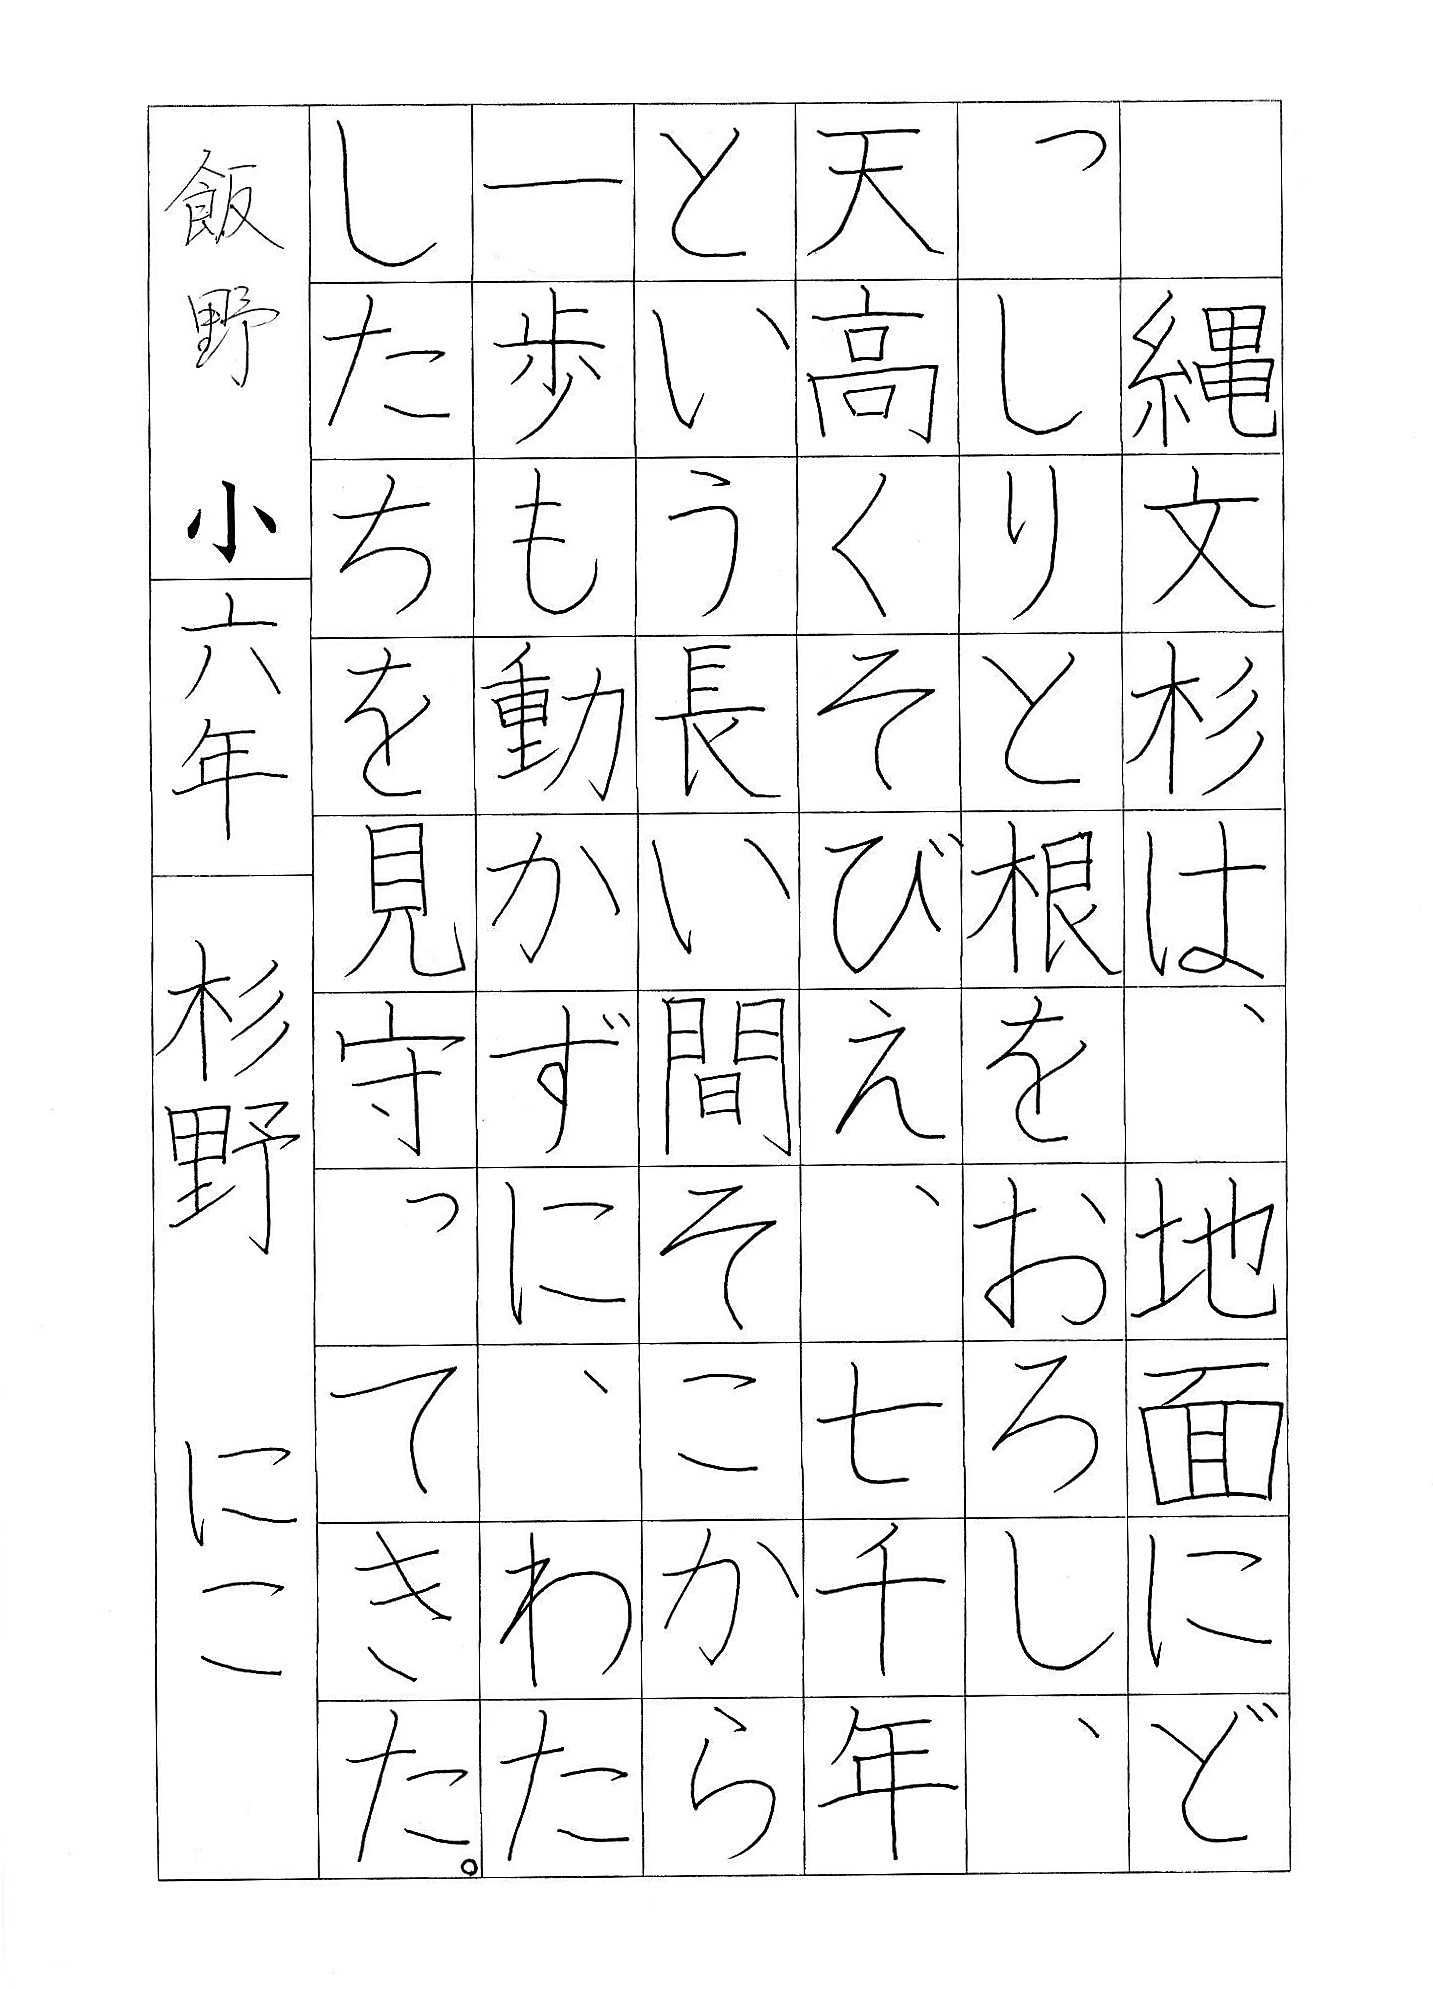 縄文杉は、地面にど
っしりと根をおろし、
天高くそびえ、七千年
という長い間そこから
一歩も動かずに、わた
したちを見守ってきた。
飯野小六年　杉野にこ